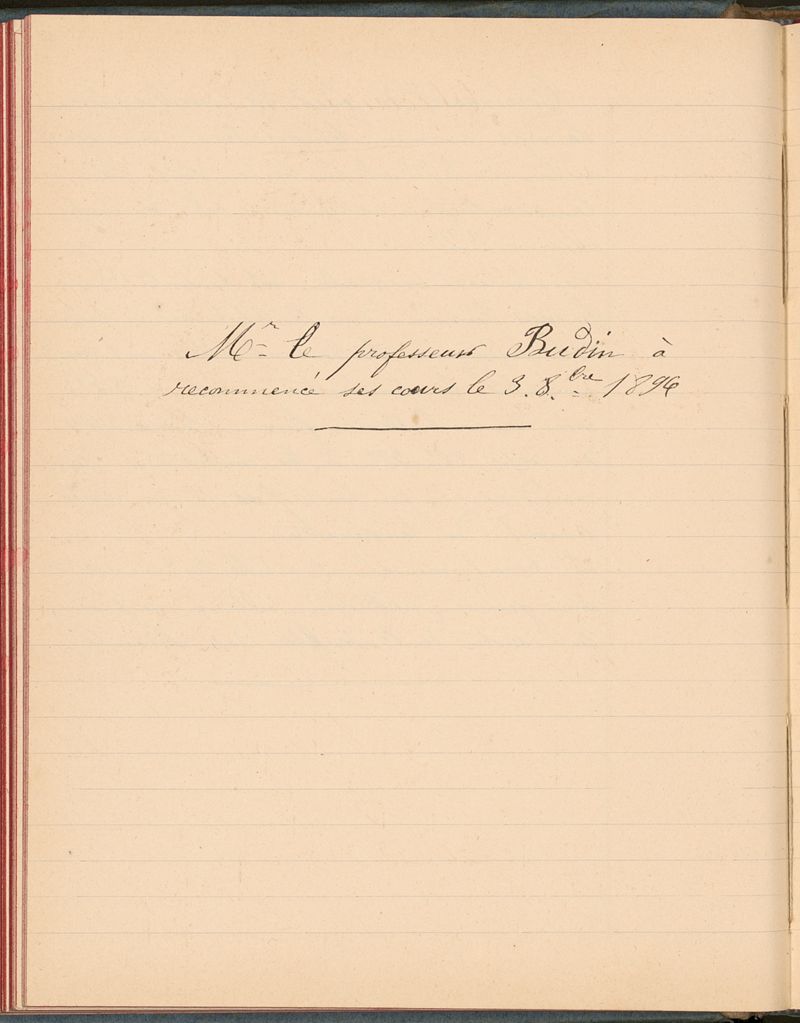 Mr le professeur Budin à
recommencé ses cours le 3. 8.bre 1896